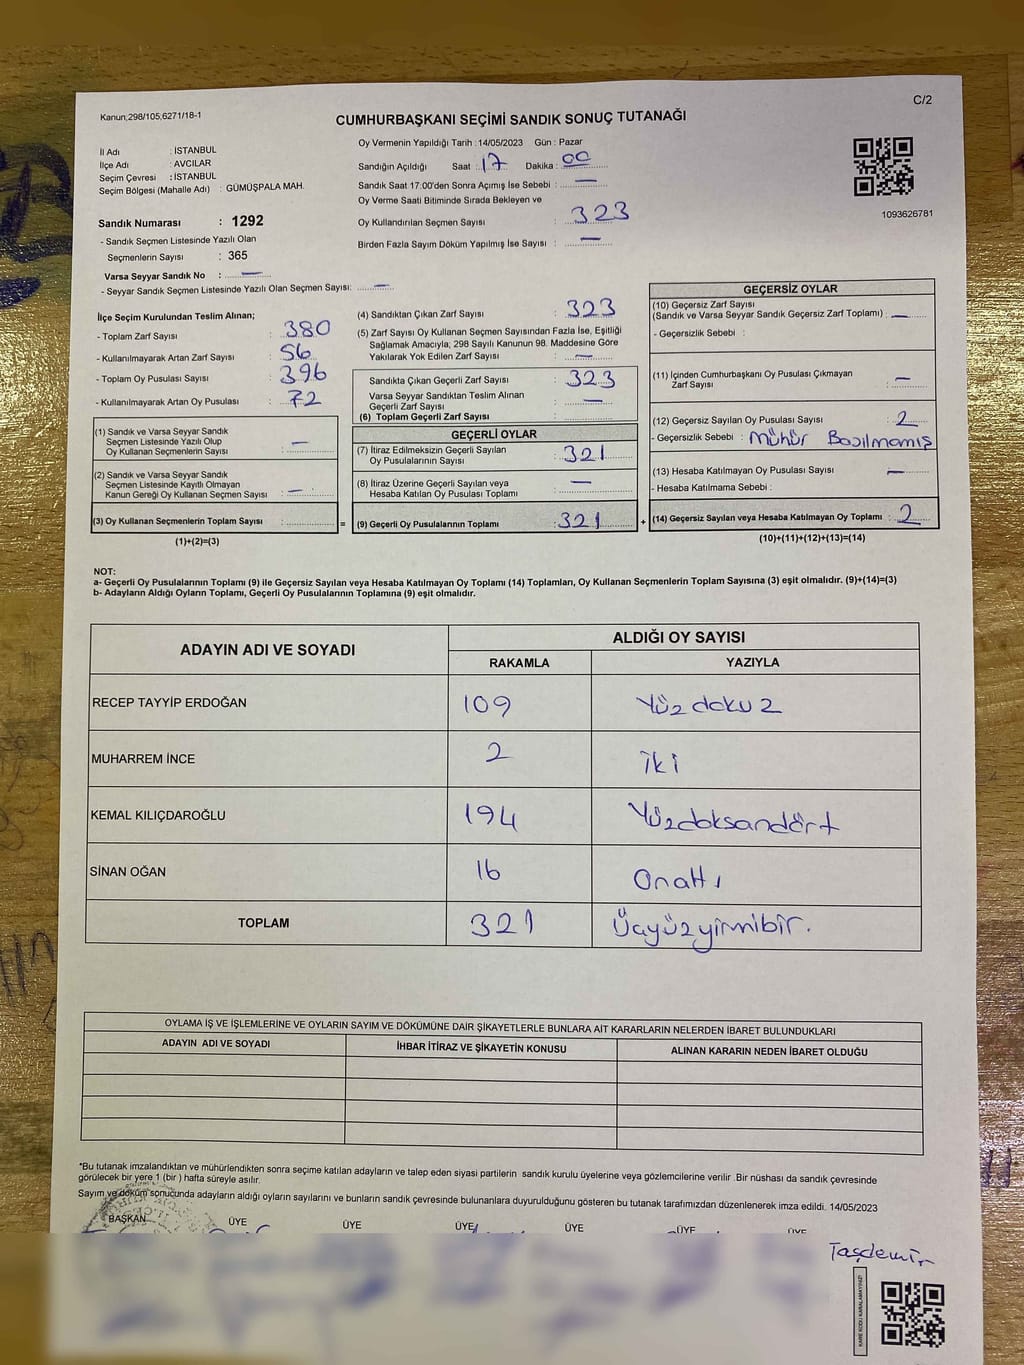 C/2
Kanun;298/105,6271/18-1
CUMHURBAŞKANI SEÇİMİ SANDIK SONUÇ TUTANAĞI
İl Adı : İSTANBUL
İlçe Adı : AVCILAR
Seçim Çevresi : İSTANBUL
Seçim Bölgesi (Mahalle Adı) : GÜMÜŞPALA MAH.
Sandık Numarası : 1292
- Sandık Seçmen Listesinde Yazılı Olan
Seçmenlerin Sayısı : 365
Varsa Seyyar Sandık No : —
- Seyyar Sandık Seçmen Listesinde Yazılı Olan Seçmen Sayısı: —
Oy Vermenin Yapıldığı Tarih : 14/05/2023 Gün : Pazar
Sandığın Açıldığı Saat : 17 Dakika : 00
Sandık Saat 17:00'den Sonra Açımış İse Sebebi : —
Oy Verme Saati Bitiminde Sırada Bekleyen ve
Oy Kullandırılan Seçmen Sayısı : 323
Birden Fazla Sayım Döküm Yapılmış İse Sayısı : —
1093626781
İlçe Seçim Kurulundan Teslim Alınan;
- Toplam Zarf Sayısı : 380
- Kullanılmayarak Artan Zarf Sayısı : 56
- Toplam Oy Pusulası Sayısı : 396
- Kullanılmayarak Artan Oy Pusulası : 72
(1) Sandık ve Varsa Seyyar Sandık
Seçmen Listesinde Yazılı Olup
Oy Kullanan Seçmenlerin Sayısı : —
(2) Sandık ve Varsa Seyyar Sandık
Seçmen Listesinde Kayıtlı Olmayan
Kanun Gereği Oy Kullanan Seçmen Sayısı : —
(3) Oy Kullanan Seçmenlerin Toplam Sayısı :
(1)+(2)=(3)
(4) Sandıktan Çıkan Zarf Sayısı : 323
(5) Zarf Sayısı Oy Kullanan Seçmen Sayısından Fazla İse, Eşitliği
Sağlamak Amacıyla; 298 Sayılı Kanunun 98. Maddesine Göre
Yakılarak Yok Edilen Zarf Sayısı : —
Sandıkta Çıkan Geçerli Zarf Sayısı : 323
Varsa Seyyar Sandıktan Teslim Alınan
Geçerli Zarf Sayısı : —
(6) Toplam Geçerli Zarf Sayısı :
=
GEÇERLİ OYLAR
(7) İtiraz Edilmeksizin Geçerli Sayılan
Oy Pusulalarının Sayısı : 321
(8) İtiraz Üzerine Geçerli Sayılan veya
Hesaba Katılan Oy Pusulası Toplamı : —
(9) Geçerli Oy Pusulalarının Toplamı : 321
+
GEÇERSİZ OYLAR
(10) Geçersiz Zarf Sayısı
(Sandık ve Varsa Seyyar Sandık Geçersiz Zarf Toplamı) : —
- Geçersizlik Sebebi :
(11) İçinden Cumhurbaşkanı Oy Pusulası Çıkmayan
Zarf Sayısı : —
(12) Geçersiz Sayılan Oy Pusulası Sayısı : 2
- Geçersizlik Sebebi : Mühür Basılmamış
(13) Hesaba Katılmayan Oy Pusulası Sayısı : —
- Hesaba Katılmama Sebebi :
(14) Geçersiz Sayılan veya Hesaba Katılmayan Oy Toplamı : 2
(10)+(11)+(12)+(13)=(14)
NOT:
a- Geçerli Oy Pusulalarının Toplamı (9) ile Geçersiz Sayılan veya Hesaba Katılmayan Oy Toplamı (14) Toplamları, Oy Kullanan Seçmenlerin Toplam Sayısına (3) eşit olmalıdır. (9)+(14)=(3)
b- Adayların Aldığı Oyların Toplamı, Geçerli Oy Pusulalarının Toplamına (9) eşit olmalıdır.
ADAYIN ADI VE SOYADI
ALDIĞI OY SAYISI
RAKAMLA YAZIYLA
RECEP TAYYİP ERDOĞAN 109 Yüzdokuz
MUHARREM İNCE 2 iki
KEMAL KILIÇDAROĞLU 194 Yüzdoksandört
SİNAN OĞAN 16 Onaltı
TOPLAM 321 Üçyüzyirmibir.
OYLAMA İŞ VE İŞLEMLERİNE VE OYLARIN SAYIM VE DÖKÜMÜNE DAİR ŞİKAYETLERLE BUNLARA AİT KARARLARIN NELERDEN İBARET BULUNDUKLARI
ADAYIN ADI VE SOYADI İHBAR İTİRAZ VE ŞİKAYETİN KONUSU ALINAN KARARIN NEDEN İBARET OLDUĞU
*Bu tutanak imzalandıktan ve mühürlendikten sonra seçime katılan adayların ve talep eden siyasi partilerin sandık kurulu üyelerine veya gözlemcilerine verilir .Bir nüshası da sandık çevresinde
görülecek bir yere 1 (bir ) hafta süreyle asılır.
Sayım ve döküm sonucunda adayların aldığı oyların sayılarını ve bunların sandık çevresinde bulunanlara duyurulduğunu gösteren bu tutanak tarafımızdan düzenlenerek imza edildi. 14/05/2023
BAŞKAN ÜYE ÜYE ÜYE ÜYE ÜYE ÜYE
Taşdemir
KARE KODU KARALAMAYINIZ!